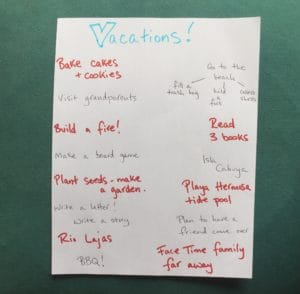 Vacations!
Bake cakes
+ cookies
Visit grandparents
Build a fire!
Make a board game
Plant seeds - make
a garden.
Write a letter!
Write a story
Rio Lajas
BBQ!
Go to the
beach
fill a
trash bag
build
a
fort
collect
shells
Read
3 books
Isla
Cabuya
Playa Hermosa
tide pool
Plan to have a
friend come over
Face Time family
far away